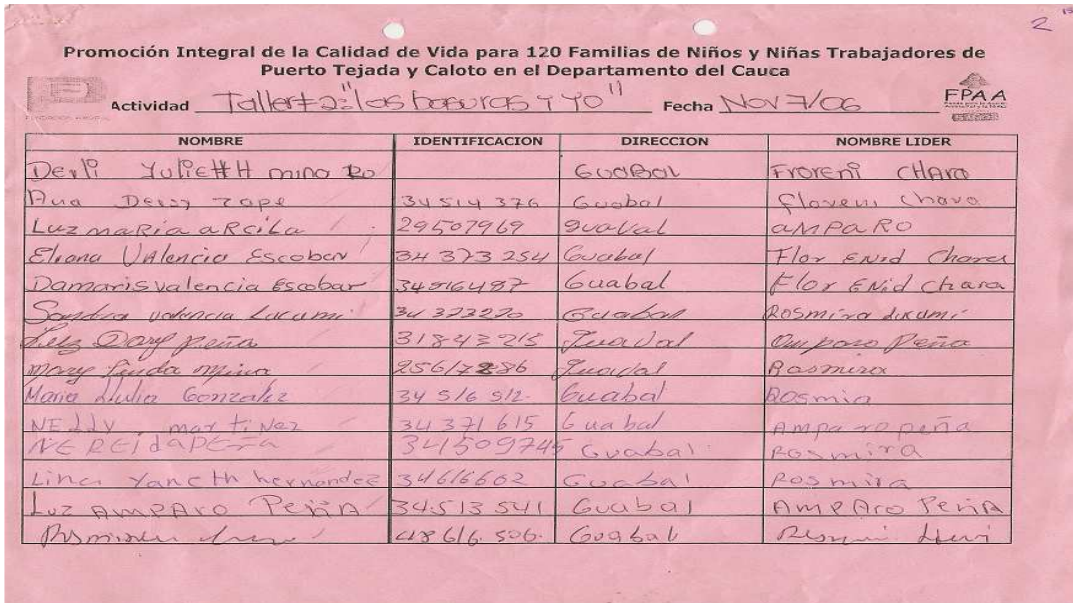 2
Promoción Integral de la Calidad de Vida para 120 Familias de Niños y Niñas Trabajadores de
Puerto Tejada y Caloto en el Departamento del Cauca
Actividad Taller #2: "las basuras y yo" Fecha Nov 7/06
FPAA
NOMBRE IDENTIFICACION DIRECCION NOMBRE LIDER
Derli Yulietth mina GUABAL Froreni CHARA
Ana Deisy zape 34514376 Guabal floreni chara
Luz maRia aRciLa 29507969 guaVal aMPARO
Eliana Valencia Escobar 34 373 254 Guabal Flor ENid Chara
Damaris valencia Escobar 34516487 Guabal Flor ENid Chara
Sandra valencia Lucumi 34 373220 Guabal Rosmira lucumi
Luz Dary peña 31843215 Guaval Amparo Peña
mary mina 25617286 Guaval Rosmira
Maria Julia Gonzalez 34 516 512. Guabal Rosmia
NEddy martiNez 34 371 615 Guabal Amparo peña
NEREidAPEÑA 341509745 Guabal Rosmira
Lina Yaneth hernandez 34616602 Guabal Rosmira
Luz AMPAro Peña 34513541 Guabal AMPAro Peña
48616.506. Guabal